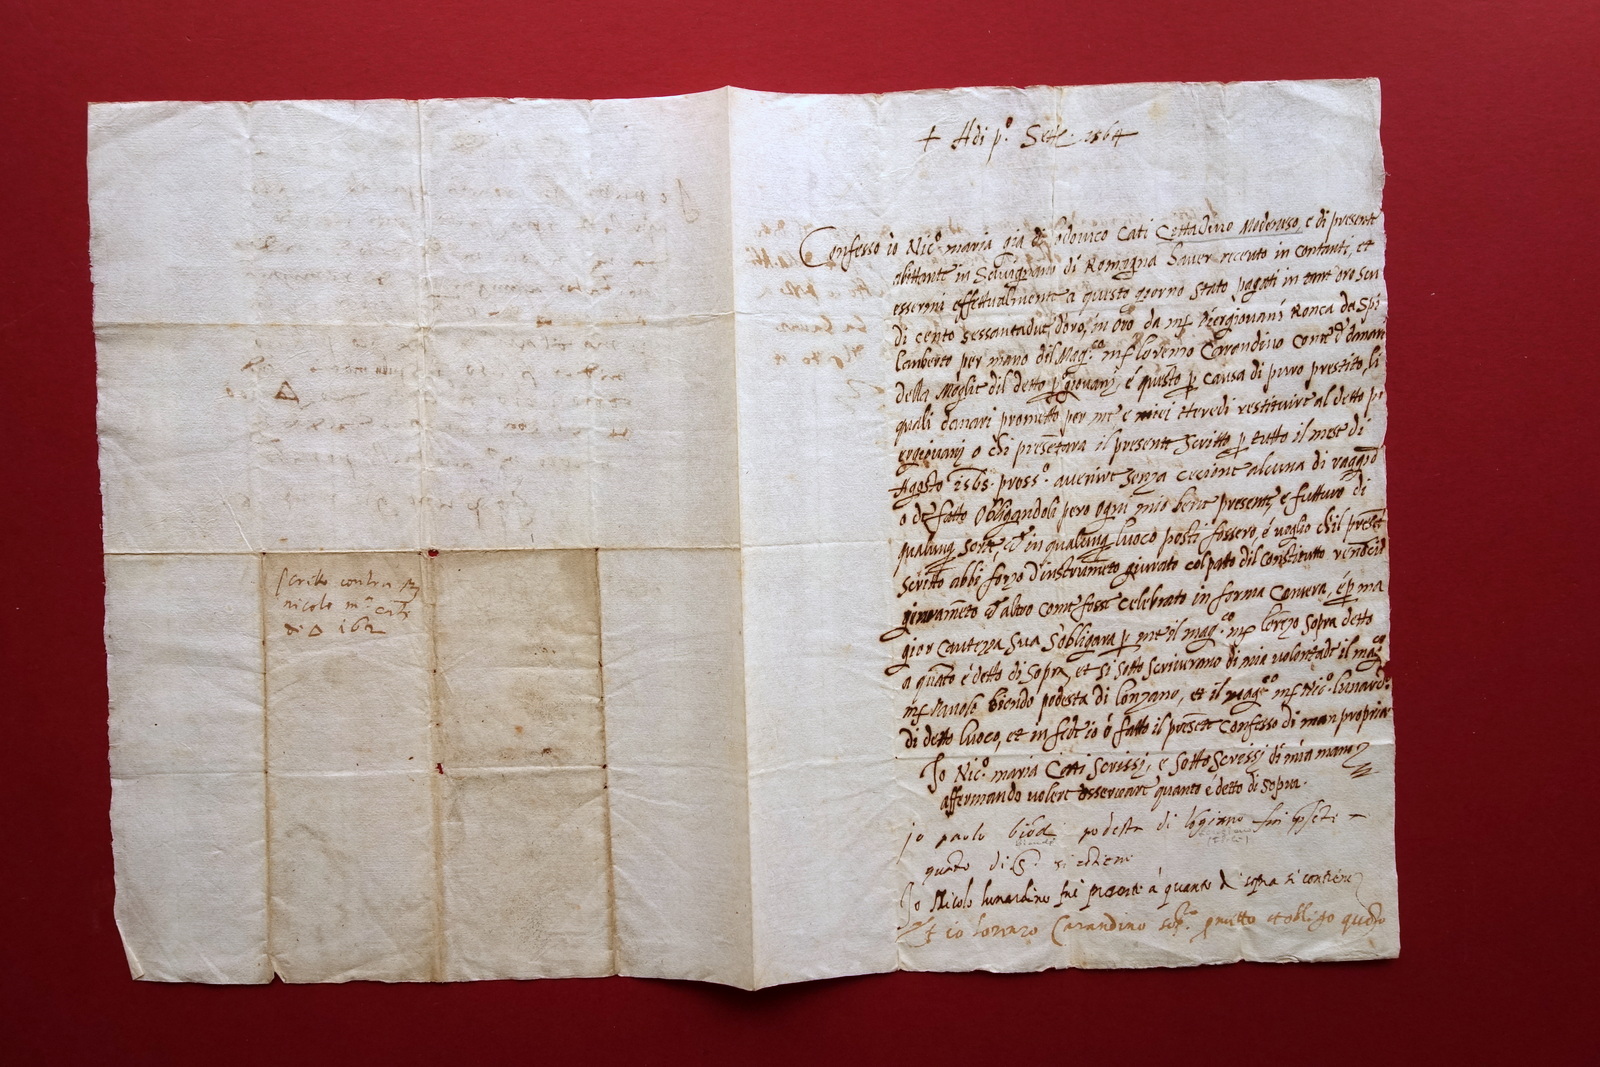 + Adi pº Sett. 1564
Confesso io Nicº maria già di lodovico Cati Cettadino Modenese, e di presente
abittante in Savignano di Romagna haver receuto in contanti, et
essermi effettualmente a questo giorno stato pagati in tant oro scu
di cento sessantadue d'oro, in oro da mſ Piergiovanj Ronca da Spi
lamberto per mano dil Mag.co mſ lorenzo Carrandino come d danari
della Moglie dil detto pgiovanj, e questo p causa di puro prestito, li
quali danari prometto per me e miei eredi restituire al detto pi
ergiovanj o chi presẽtara il presente Scritto p tutto il mese di
Agosto 1565. prossº. avenire senza ecetione alcuna di raggiõ
o de fatto Obligandoli pero ogni mio bene presente e futturo di
qualunq sorte, et in qualunq luoco posti fossero, é voglio chil presẽte
Scritto abbi forza d'instrumẽto giurato col pato dil Constitutto
giuramẽto et altro come fosse celebrato in forma Camera, é p ma
gior cautezza Sua s'obligara p me il mag.co mſ lorẽzo sopra detto
a quãto é detto di Sopra, et si sotto scriverano di mia volontade il mag.co
mſ Pavolo biondo podesta di lonzano, et il mag.co mſ Nicº. lunardº
di detto luoco, et in fede io ó fatto il presẽte Confesso di man propria
Io Nicº. maria Cati Scrissj, e sotto Scrissj di mia mano
affermando volere osservare quanto é detto di Sopra.
Io paolo biõdo podesta di lõgiano fui psẽte a
quãto di Sª. si cõtiene
Io Nicolo lunardino fui presente á quanto di sopra si contiene
Et io lorenzo Carandino sopto pmetto et obligo quãto
Scritto contra
nicolo mª cati
di Δ 162